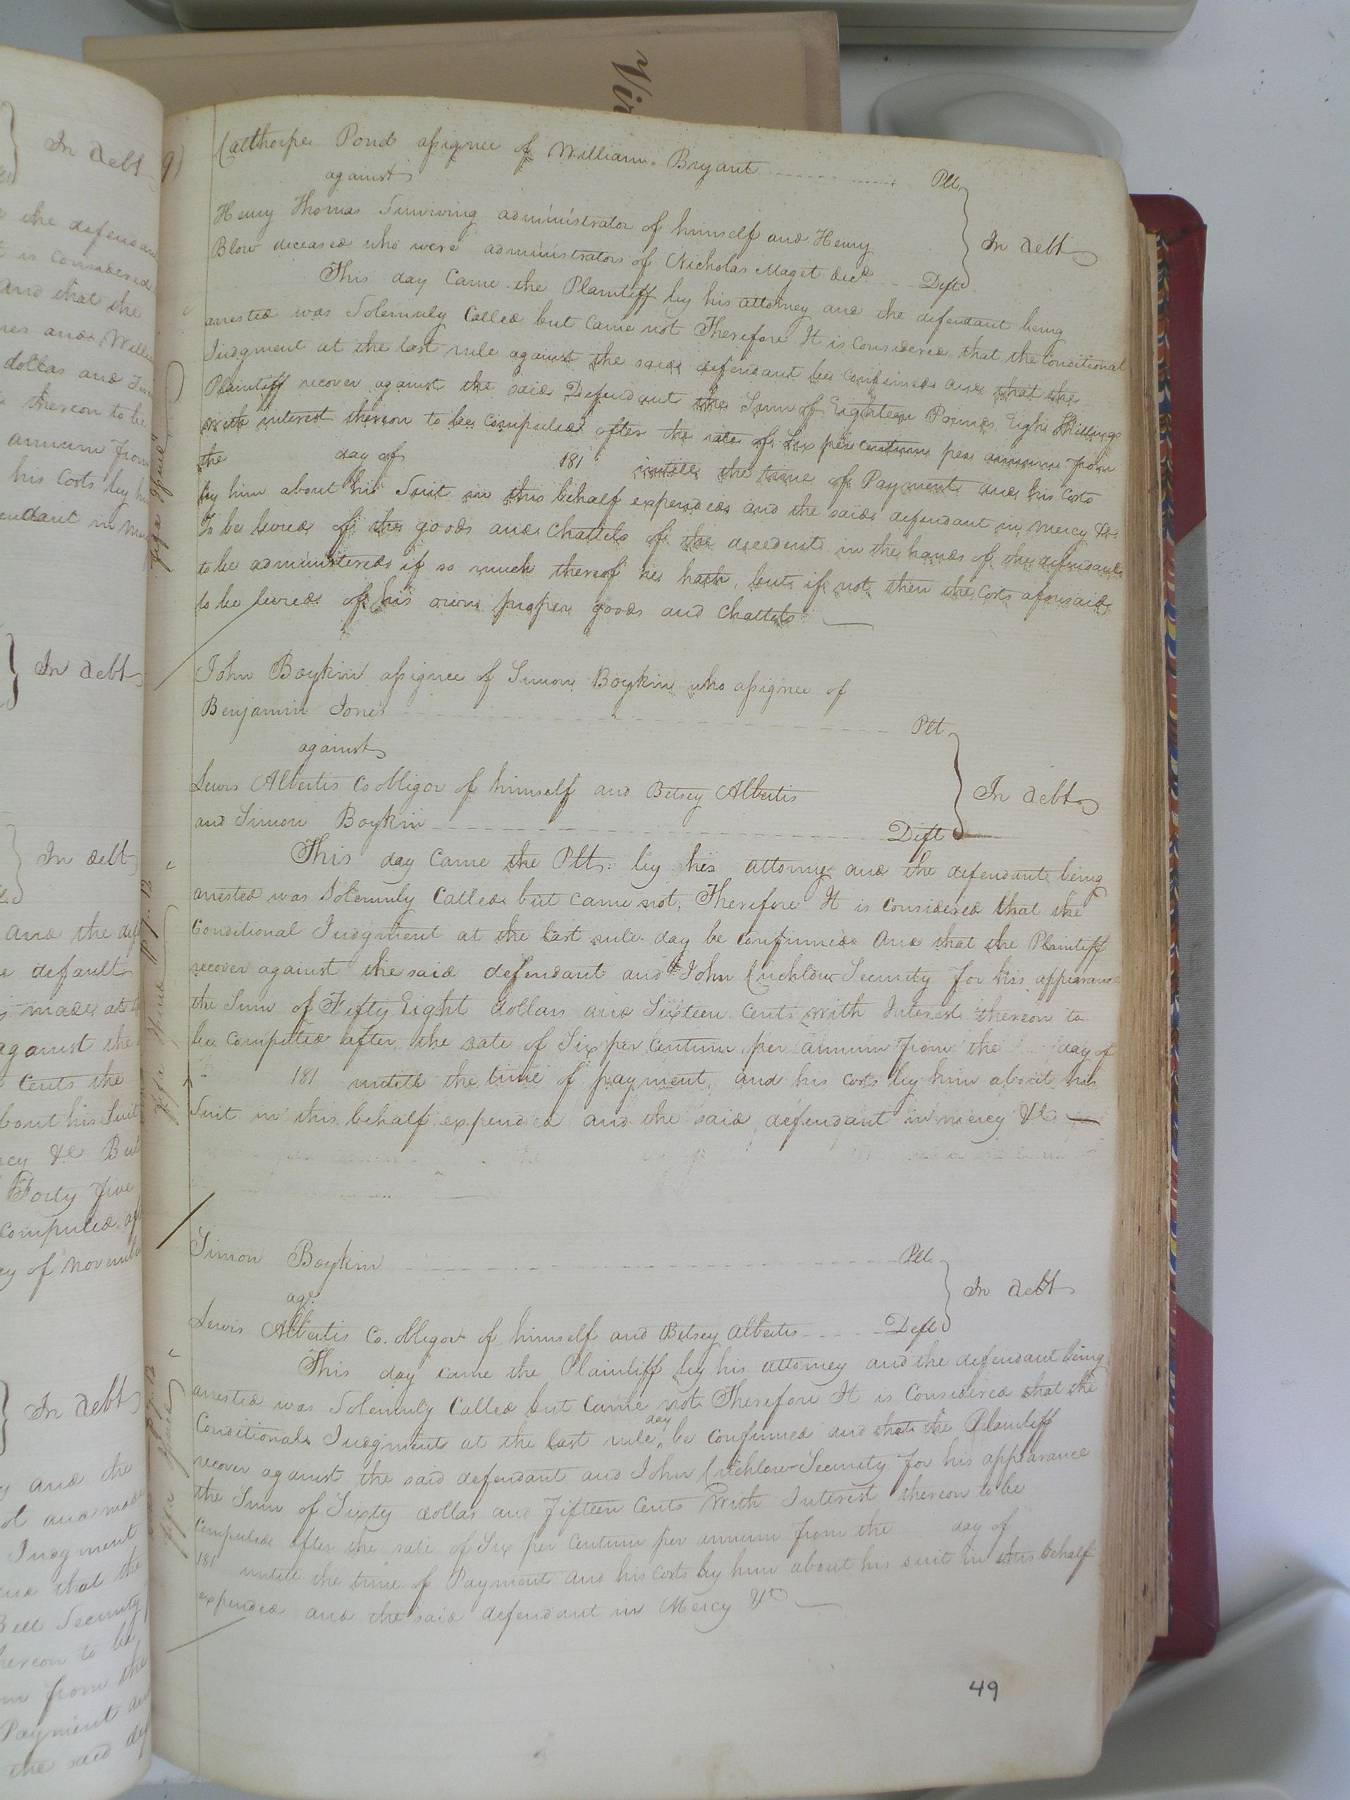 Calthorpe Pond assignee of William Bryant Plt
against
Henry Thomas Surviving administrator of himself and Henry
In debt
Blow deceased who were administrators of Nicholas Maget decd Deft
This day came the Plaintiff by his attorney and the defendant being
arrested was Solemnly Called but came not Therefore It is considered that the Conditional
Judgment at the last rule against the said defendant be confirmed and that the
Plaintiff recover against the said Defendant the Sum of Eighteen Pounds Eight Shillings
with interest thereon to be computed after the rate of Six per centum per annum from
the day of 181 untill the time of Payment and his Costs
by him about his Suit in this behalf expended and the said defendant in mercy &c
To be levied of the goods and Chattels of the decedent in the hands of the defendant
to be administered if so much thereof he hath, but if not then the Costs aforesaid
to be levied of his own proper goods and Chattels
John Boykin assignee of Simon Boykin who assignee of
Benjamin Jones Plt
against
Lewis Albertis Co Obligor of himself and Betsey Albertis
In debt
and Simon Boykin Deft
This day Came the Plt: by his attorney and the defendant being
arrested was Solemnly Called but came not, Therefore It is considered that the
Conditional Judgment at the last rule day be confirmed And that the Plaintiff
recover against the said defendant and John Crichlow Security for his appearance
the Sum of Fifty Eight dollars and Sixteen Cents with Interest thereon to
be computed after the rate of Six per centum per annum from the day of
181 untill the time of payment, and his costs by him about his
Suit in this behalf expended and the said defendant in mercy &c
Simon Boykin Plt
agt
In debt
Lewis Albertis Co. Obligor of himself and Betsey Albertis Deft
This day came the Plaintiff by his attorney and the defendant being
arrested was Solemnly Called but came not Therefore It is Considered that the
Conditional Judgment at the last rule day be confirmed and that the Plaintiff
recover against the said defendant and John Crichlow Security for his appearance
the Sum of Sixty dollars and Fifteen Cents With Interest thereon to be
computed after the rate of Six per Centum per annum from the day of
181 untill the time of Payment and his Costs by him about his suit in this behalf
expended and the said defendant in Mercy &c
49